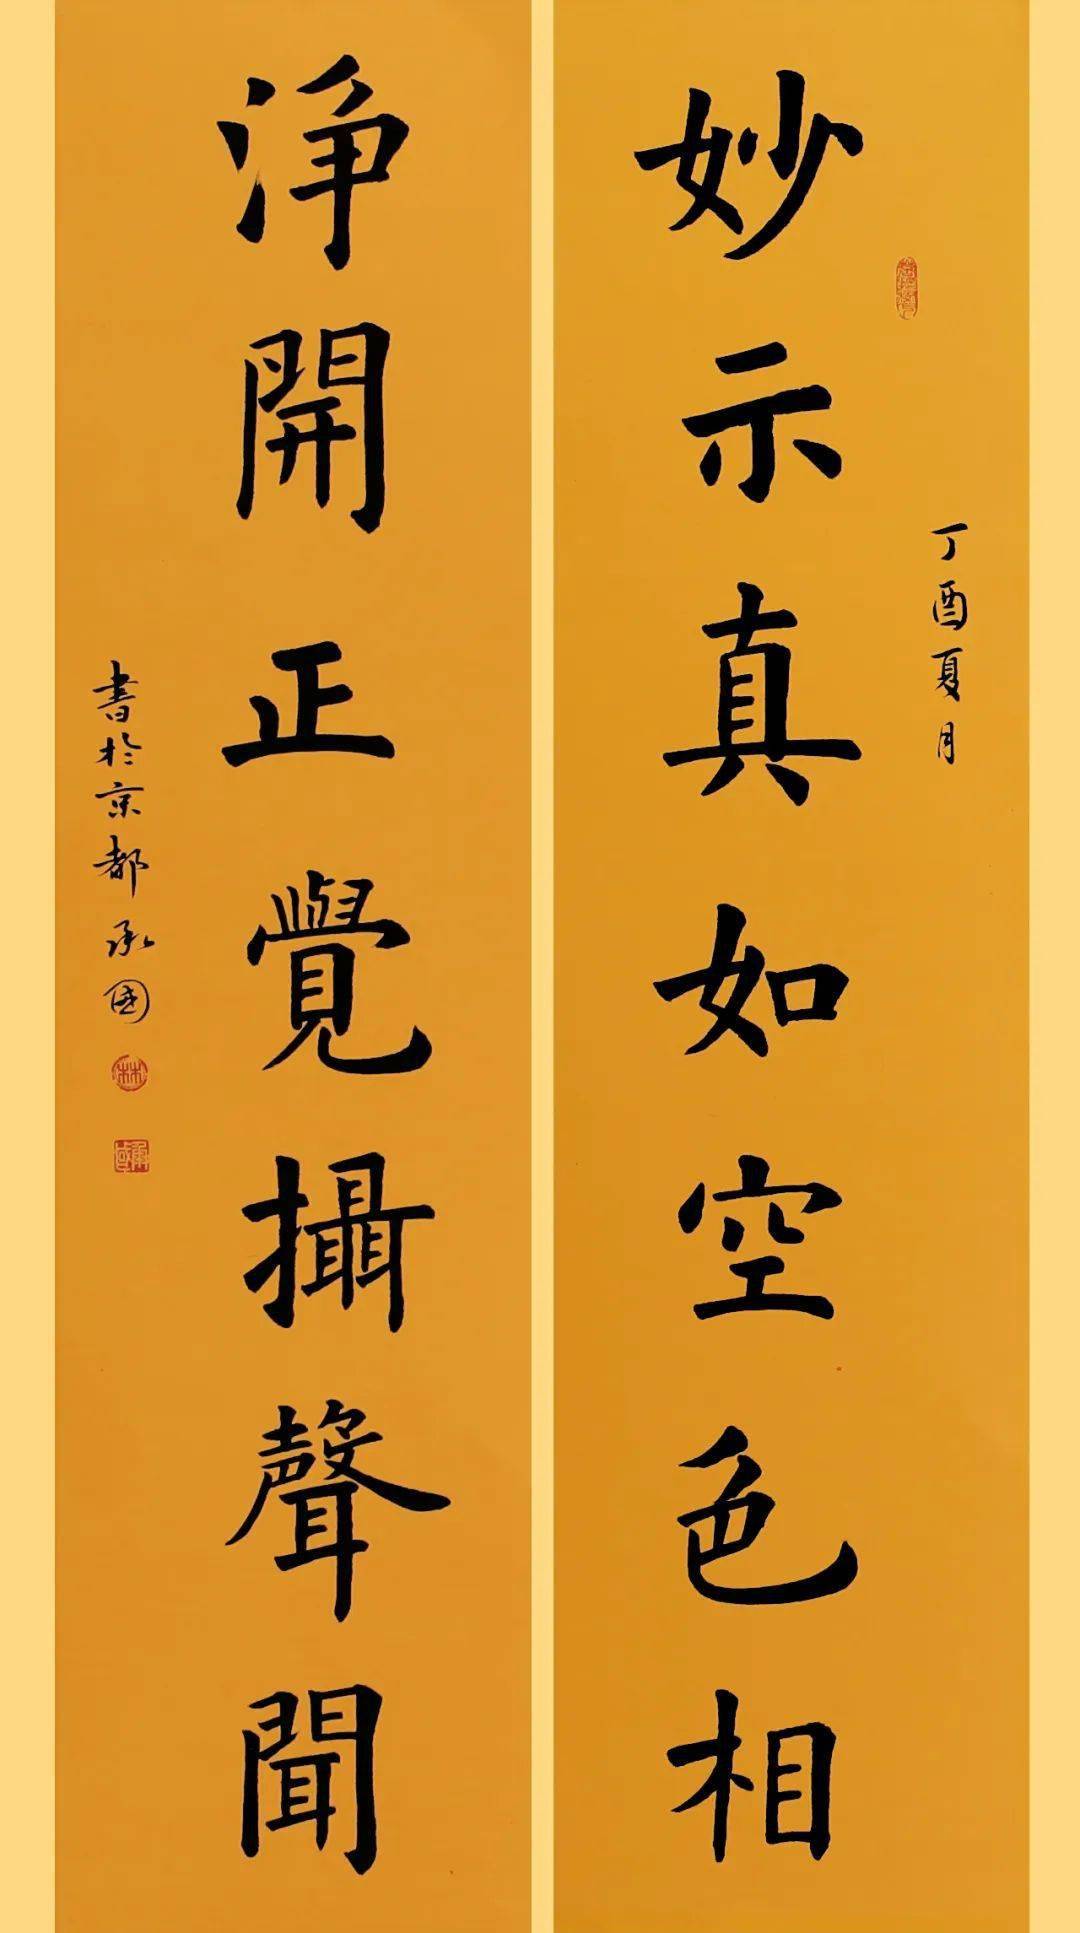 丁酉夏月
妙示真如空色相
淨開正覺攝聲聞
書於京都承國
林